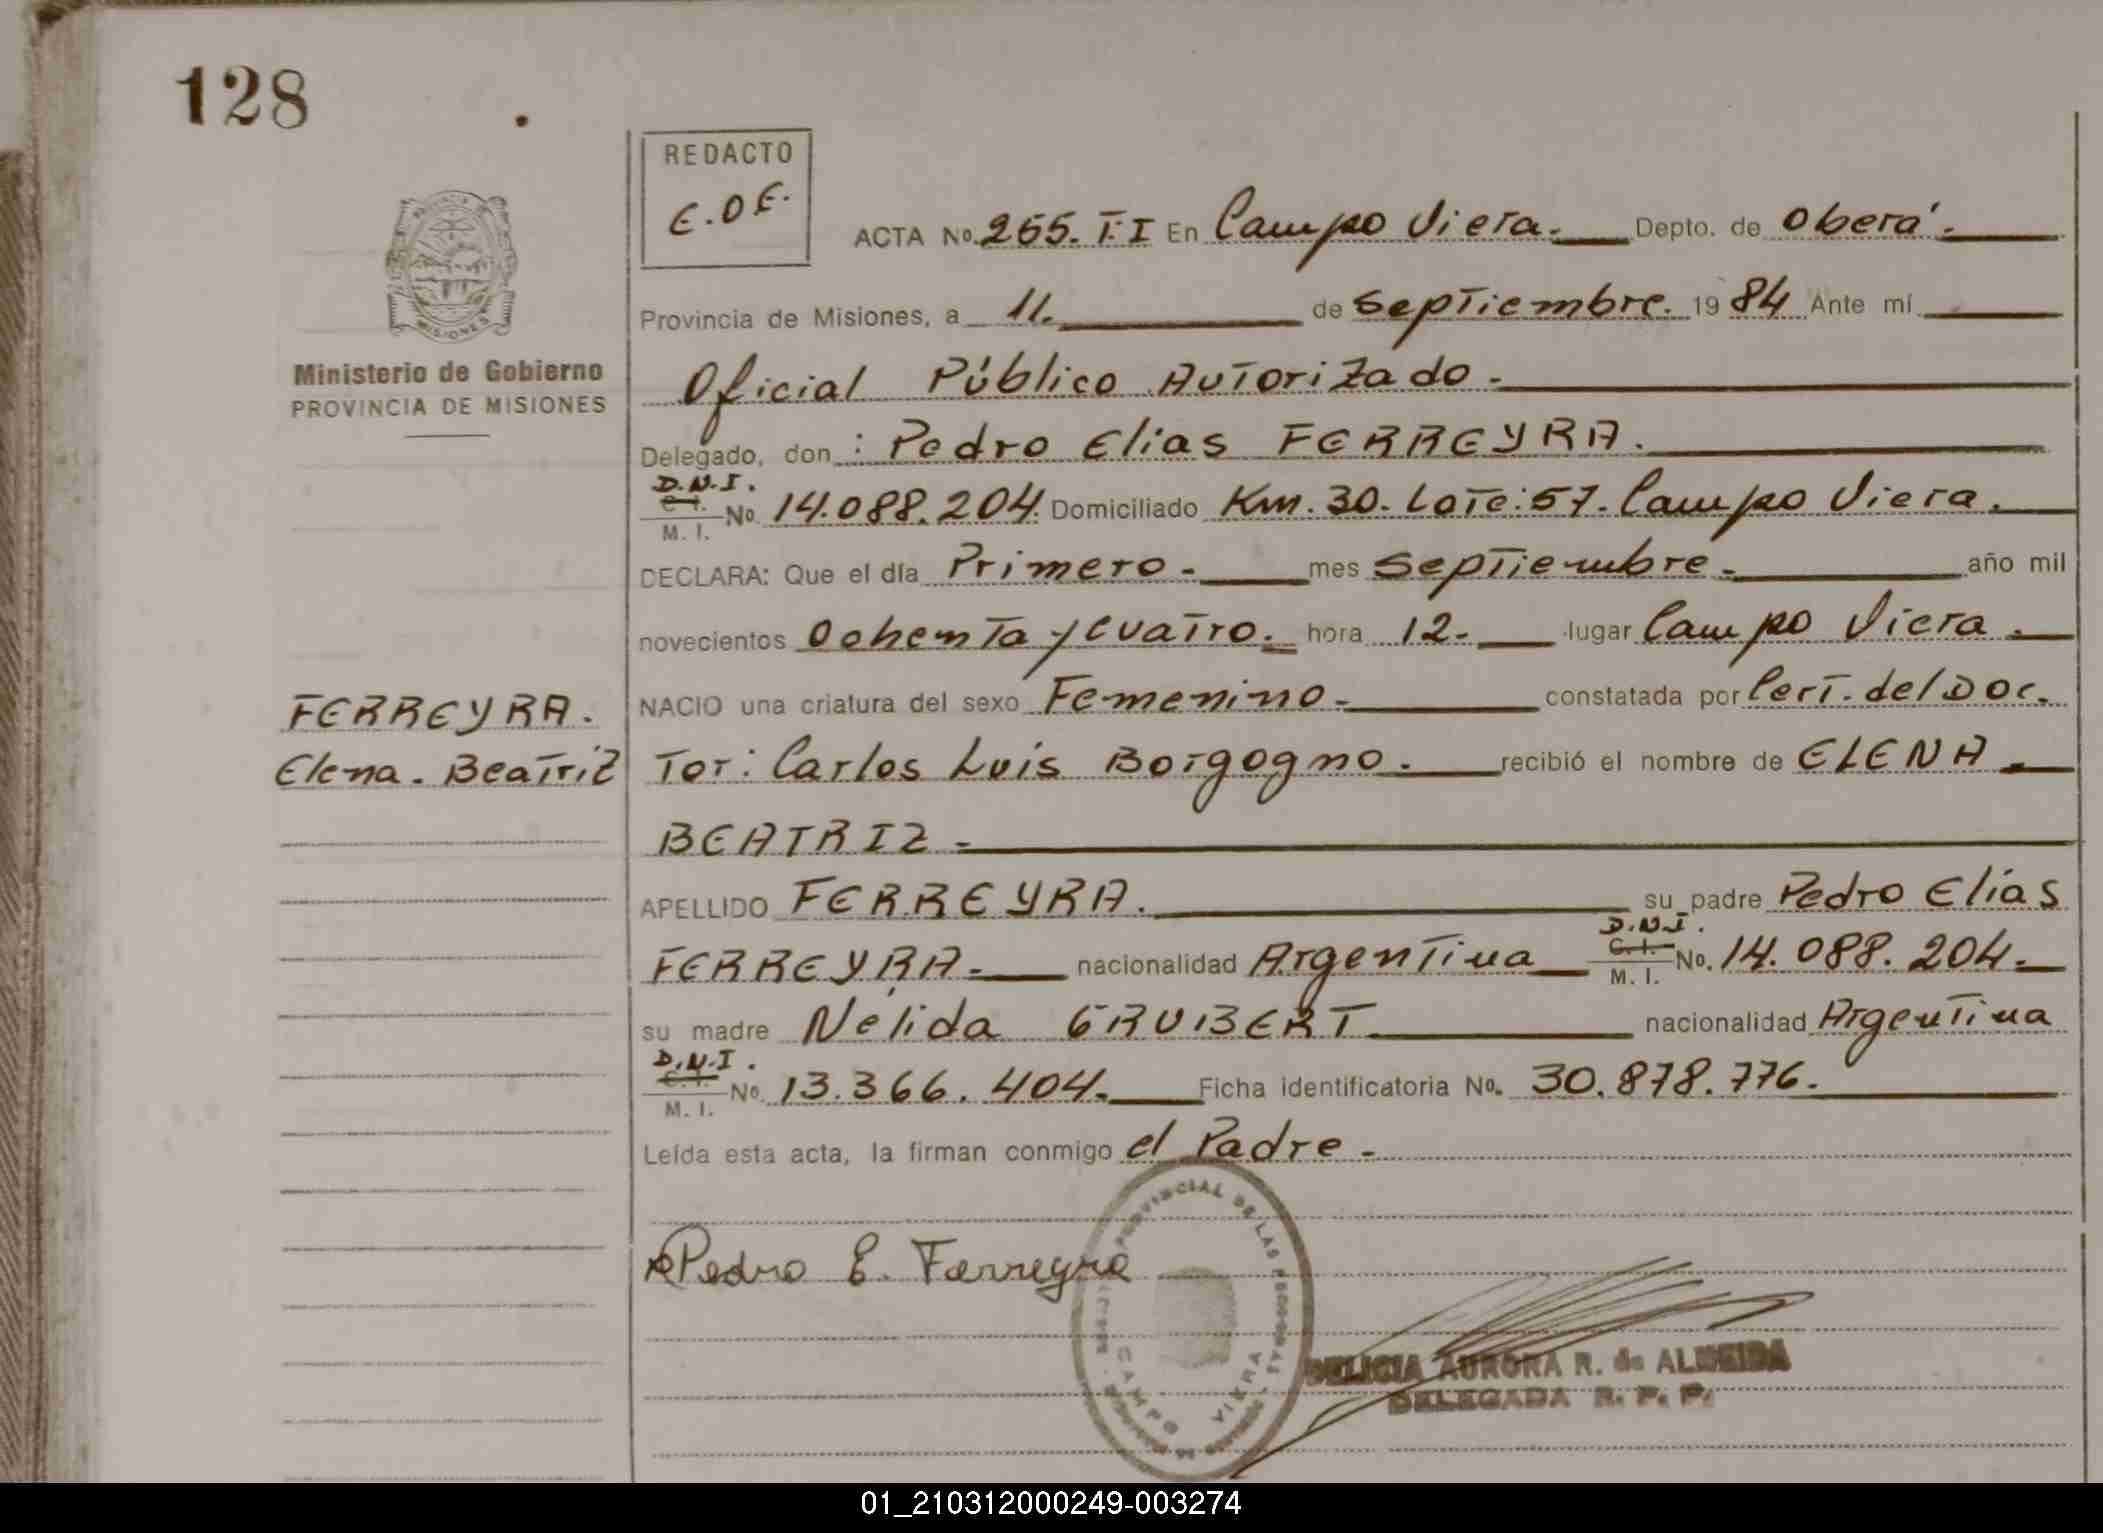 128
REDACTO
E.D.E.
ACTA No. 265. T:I En Campo Viera. Depto. de Oberá.
Provincia de Misiones, a 11. de Septiembre. 19 84 Ante mí
Ministerio de Gobierno
PROVINCIA DE MISIONES
MISIONES
Oficial Público Autorizado.
Delegado, don: Pedro Elias FERREYRA.
D.N.I.
C.I.
M. I. No. 14.088.204. Domiciliado Km. 30. Lote: 57. Campo Viera.
DECLARA: Que el día Primero. mes Septiembre. año mil
novecientos Ochenta y Cuatro. hora 12. lugar Campo Viera.
NACIO una criatura del sexo Femenino. constatada por Cert. del Doc.
FERREYRA.
Elena. Beatriz
Tor: Carlos Luis Borgogno. recibió el nombre de ELENA
BEATRIZ.
APELLIDO FERREYRA. su padre Pedro Elías
D.N.I.
FERREYRA. nacionalidad Argentina C.I. M. I. No. 14.088.204.
su madre Nélida GRUBERT nacionalidad Argentina
D.N.I.
C.I.
M. I. No. 13.366.404. Ficha identificatoria No. 30.878.776.
Leída esta acta, la firman conmigo el Padre.
Pedro E. Ferreyra
PROVINCIAL DE LAS
CAMPO VIERA
DELICIA AURORA R. de ALMEIDA
DELEGADA R. P. P.
01_210312000249-003274